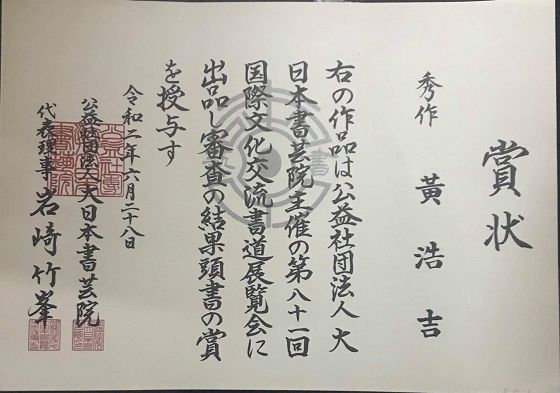 賞状
秀作 黄浩吉
右の作品は公益社団法人大
日本書芸院主催の第八十一回
国際文化交流書道展覧会に
出品し審査の結果頭書の賞
を授与す
令和二年六月二十八日
公益社団法人大日本書芸院
代表理事 岩崎竹峯